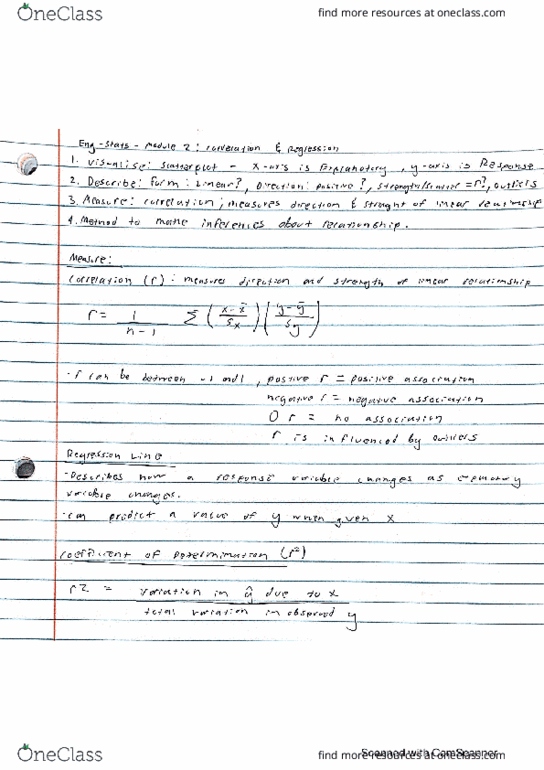 OneClass
find more resources at oneclass.com
Eng-Stats - Module 2: Correlation & Regression
1. Visualise: Scatterplot - x-axis is Explanatory, y-axis is Response
2. Describe: Form: Linear?, Direction: positive?, strength/scatter = r?, outliers
3. Measure: correlation; measures direction & strenght of linear relationship
4. Method to make inferences about relationship.
Measure:
Correlation (r): measures direction and strength of linear relationship
r = 1/(n-1) Σ ((x-x̄)/Sx)((y-ȳ)/Sy)
- r can be between -1 and 1, positive r = positive association
negative r = negative association
0 r = no association
r is influenced by outliers
Regression Line
- Describes how a response variable changes as
variable changes.
- can predict a value of y when given x
coefficient of Determination (r²)
r2 = variation in ŷ due to x
total variation in observed y
Scanned with CamScanner
OneClass
find more resources at oneclass.com